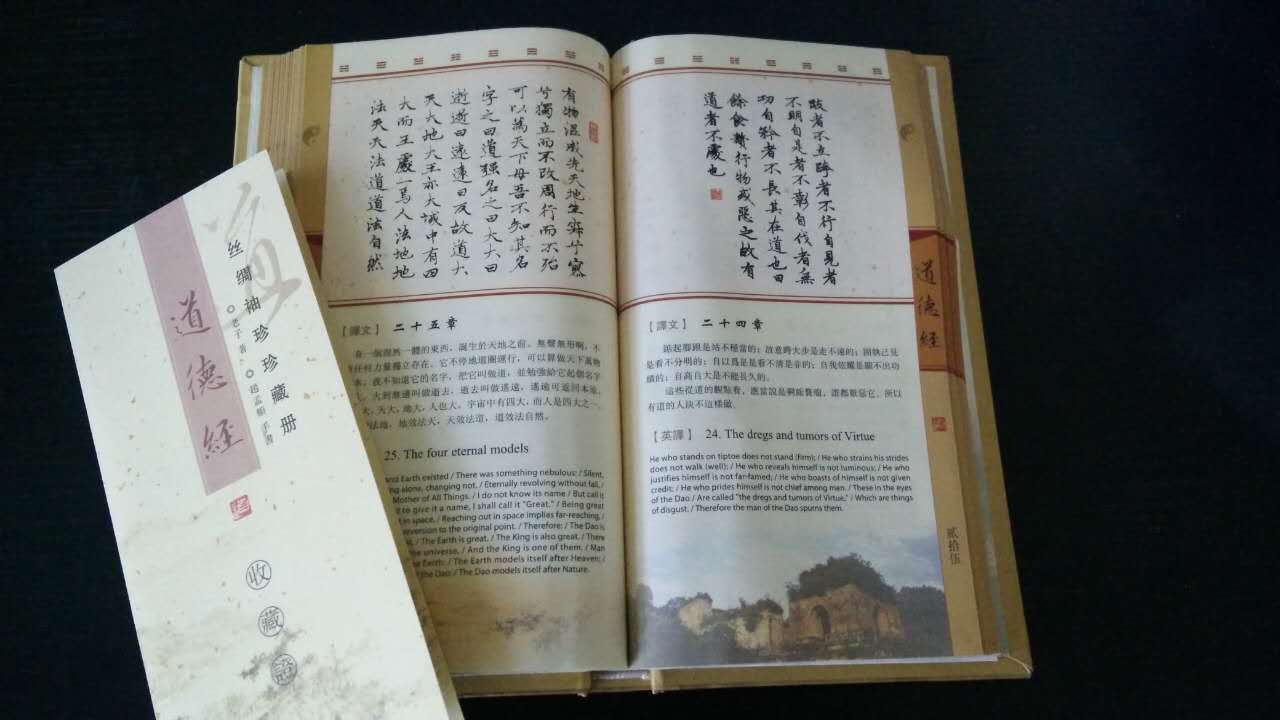 道德经
丝绸袖珍珍藏册
老子著
赵孟頫手書
收藏證
跂者不立跨者不行自見者
不明自是者不彰自伐者無
功自矜者不長其在道也曰
餘食贅行物或惡之故有
道者不處也
【譯文】 二十四章
踮起腳跟是站不穩當的；故意跨大步是走不遠的；固執己見
是看不分明的；自以爲是是看不清是非的；自我炫耀是顯不出功
績的；自高自大是不能長久的。
這些從道的觀點看，應當說是剩飯贅瘤，誰都厭惡它。所以
有道的人決不這樣做。
【英譯】 24. The dregs and tumors of Virtue
He who stands on tiptoe does not stand (firm); / He who strains his strides
does not walk (well); / He who reveals himself is not luminous; / He who
justifies himself is not far-famed; / He who boasts of himself is not given
credit; / He who prides himself is not chief among men. / These in the eyes
of the Dao / Are called "the dregs and tumors of Virtue," / Which are things
of disgust. / Therefore the man of the Dao spurns them.
道德经
贰拾伍
有物混成先天地生寂兮寥
兮獨立而不改周行而不殆
可以為天下母吾不知其名
字之曰道强名之曰大大曰
逝逝曰遠遠曰反故道大
天大地大王亦大域中有四
大而王處一焉人法地地
法天天法道道法自然
【譯文】 二十五章
有一個渾然一體的東西，誕生於天地之前。無聲無形啊，不
任何力量獨立存在。它不停地週圍運行，可以算做天下萬物
本。我不知道它的名字，把它叫做道，並勉強給它起個名字
。大到無邊叫做逝去，逝去叫做遥遠，遥遠可返回本源。
大，天大，地大，人也大。宇宙中有四大，而人是四大之一。
法地，地效法天，天效法道，道效法自然。
25. The four eternal models
and Earth existed / There was something nebulous: / Silent,
ing alone, changing not, / Eternally revolving without fail, /
Mother of All Things. / I do not know its name / But call it
to give it a name, I shall call it "Great." / Being great
in space, / Reaching out in space implies far-reaching, /
reversion to the original point. / Therefore: / The Dao is
/ The Earth is great, / The King is also great. / There
the universe, / And the King is one of them. / Man
the Earth; / The Earth models itself after Heaven; /
the Dao: / The Dao models itself after Nature.